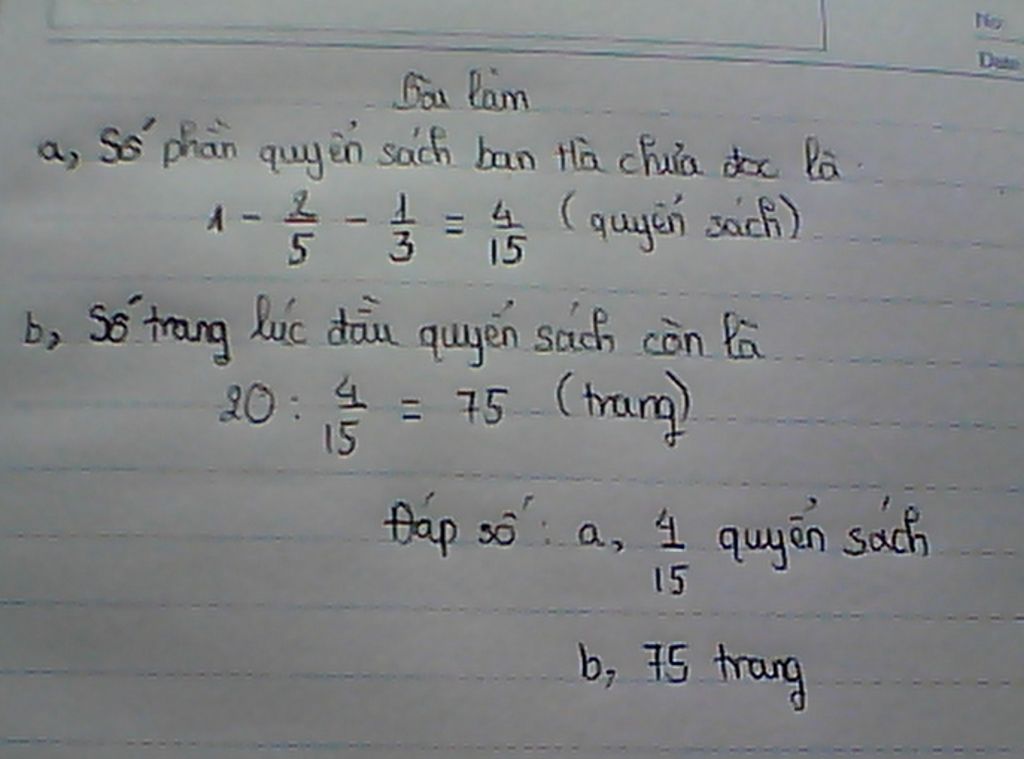 No
Date
Bài làm
a, Số phần quyển sách bạn Hà chưa đọc là
1 - 2/5 - 1/3 = 4/15 (quyển sách)
b, Số trang lúc đầu quyển sách còn là
20 : 4/15 = 75 (trang)
Đáp số : a, 4/15 quyển sách
b, 75 trang